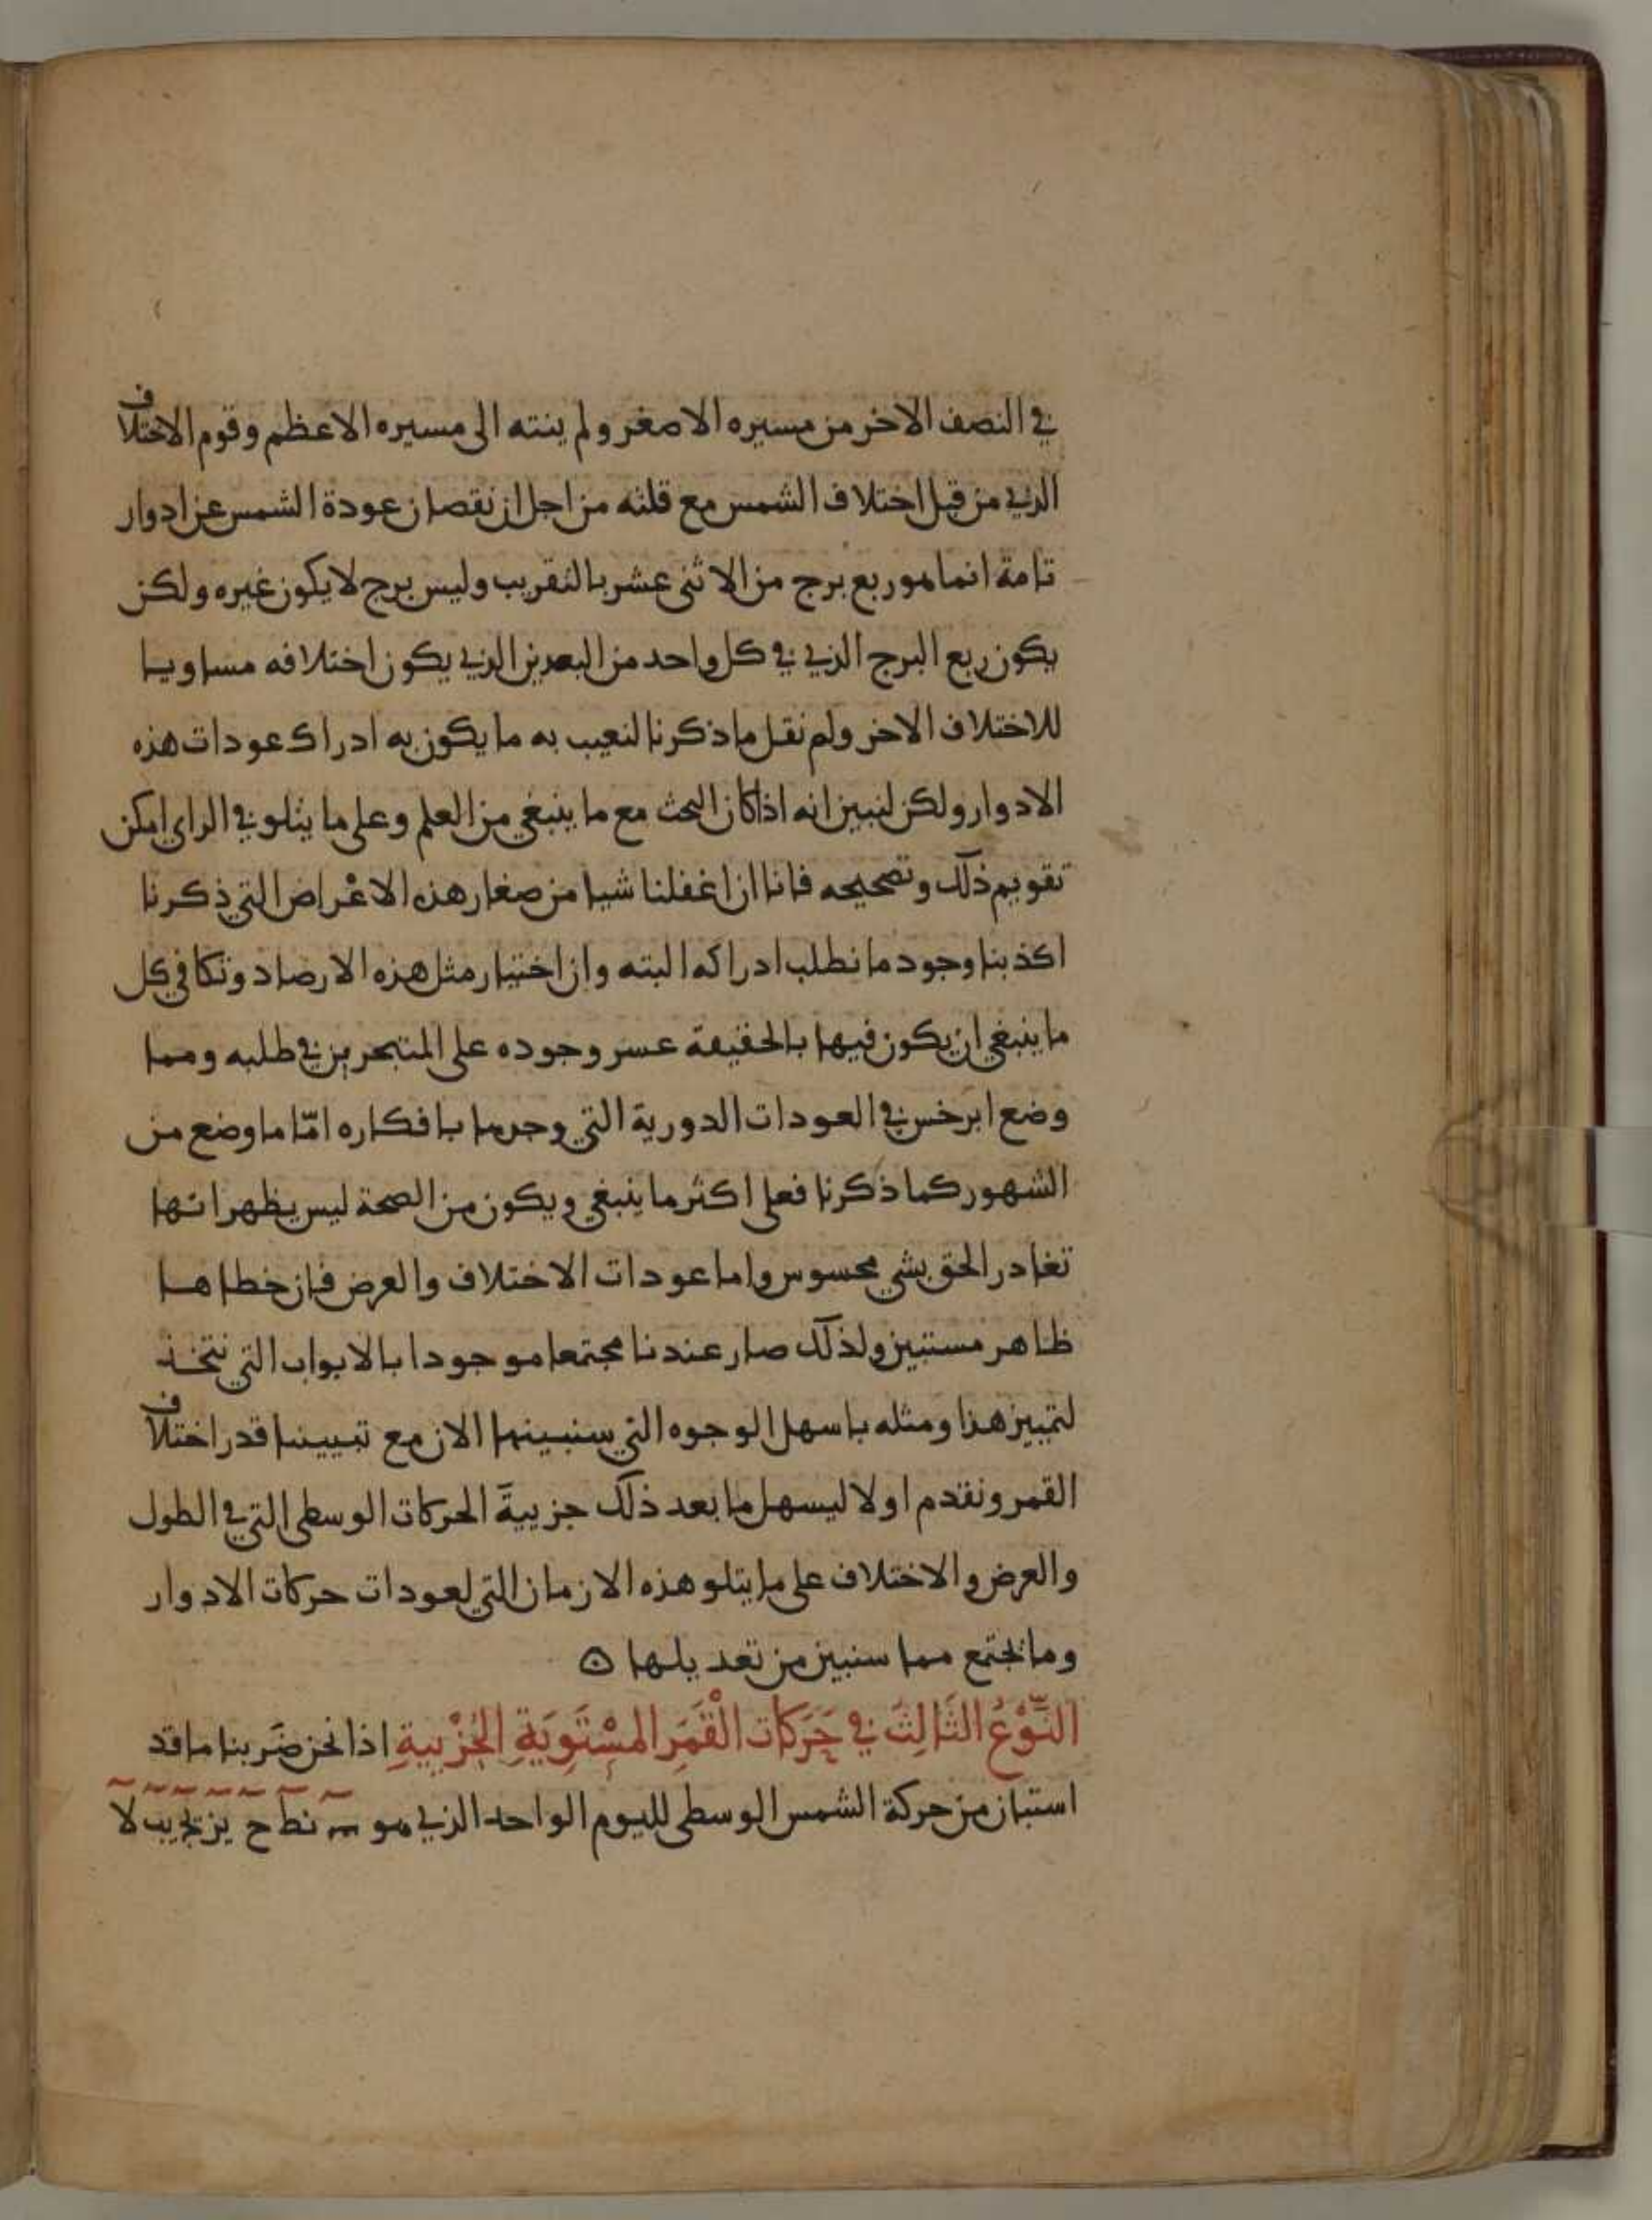 في النصف الاخر من مسيره الاصغر ولم ينته الى مسيره الاعظم وقوم الاختلاف
الذي من قبل اختلاف الشمس مع قلته من اجل ان نقصان عودة الشمس عن ادوار
تامة انما هو ربع برج من الاثنى عشر بالتقريب وليس برج لا يكون غيره ولكن
يكون ربع البرج الذي في كل واحد من البعدين الذي يكون اختلافه مساويا
للاختلاف الاخر ولم نقل ما ذكرنا لنعيب به ما يكون به ادراك عودات هذه
الادوار ولكن لنبين انه اذا كان البحث مع ما ينبغي من العلم وعلى ما يتلو في الراي امكن
تقويم ذلك وتصحيحه فانا ان اغفلنا شيا من صغار هذه الاعراض التي ذكرنا
اكذبنا وجود ما نطلب ادراكه البته وان اختيار مثل هذه الارصاد وتكافي كل
ما ينبغي ان يكون فيها بالحقيقة عسر وجوده على المتبحرين في طلبه ومما
وضع ابرخس في العودات الدورية التي وجدها بافكاره امّا ما وضع من
الشهور كما ذكرنا فعلى اكثر ما ينبغي ويكون من الصحة ليس يظهر انها
تغادر الحق بشي محسوس واما عودات الاختلاف والعرض فان خطاها
ظاهر مستبين ولذلك صار عندنا مجتمعا موجودا بالابواب التي نتخذ
لتمييز هذا ومثله باسهل الوجوه التي سنبينها الان مع تبييننا قدر اختلاف
القمر ونقدم اولا ليسهل ما بعد ذلك جزيية الحركات الوسطى التي في الطول
والعرض والاختلاف على ما يتلو هذه الازمان التي لعودات حركات الادوار
وما يجتمع مما سنبين من تعديلها ۞
النَّوْعُ الثَّالِثُ في حَرَكَات الْقَمَرِ المُسْتَوِيَةِ الجُزْيِيةِ اذا نحن ضربنا ما قد
استبان من حركة الشمس الوسطى لليوم الواحد الذي هو نط ح يز يج يب لا